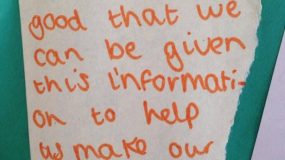 good that we
can be given
this informati-
on to help
us make our